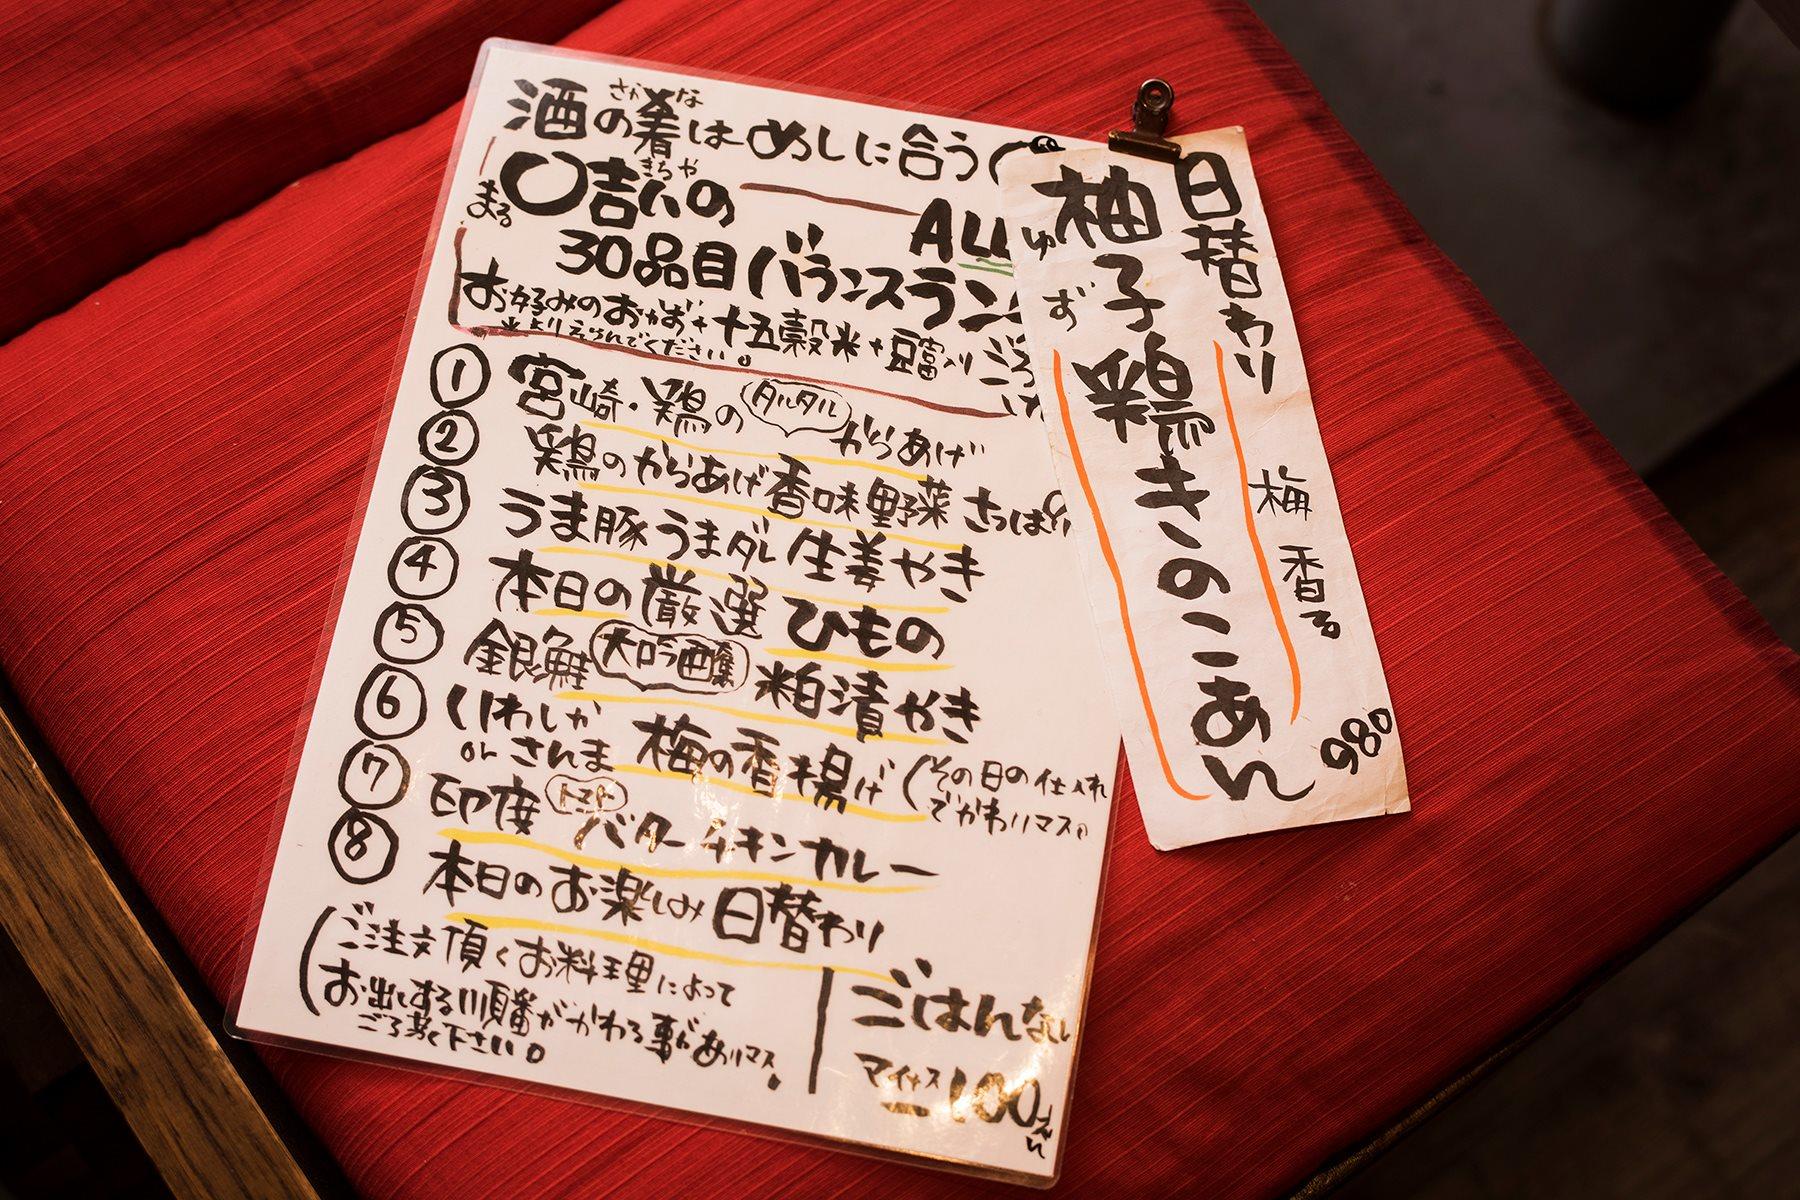 酒の肴はめしに合う
さかな
まる
〇吉いの
きちや
ALL
30品目バランスラン
お好みのおかず+十五穀米+豆富入り
※よりえらんでください。
① 宮崎・鶏のタルタルからあげ
② 鶏のからあげ香味野菜さっぱり
③ うま豚うまダレ生姜やき
④ 本日の厳選ひもの
⑤ 銀鮭大吟醸粕漬やき
⑥ いわしか
orさんま
梅の香揚げ
(その日の仕入れ
でかわりマス。
⑦ 印度トマトバターチキンカレー
⑧ 本日のお楽しみ日替わり
(ご注文頂くお料理によって
お出しする順番がかわる事があリマス。
ご了承下さい。
ごはんなし
マイナス
-100えん
日替わり
梅香る
柚子鶏きのこあん
ゆず
980